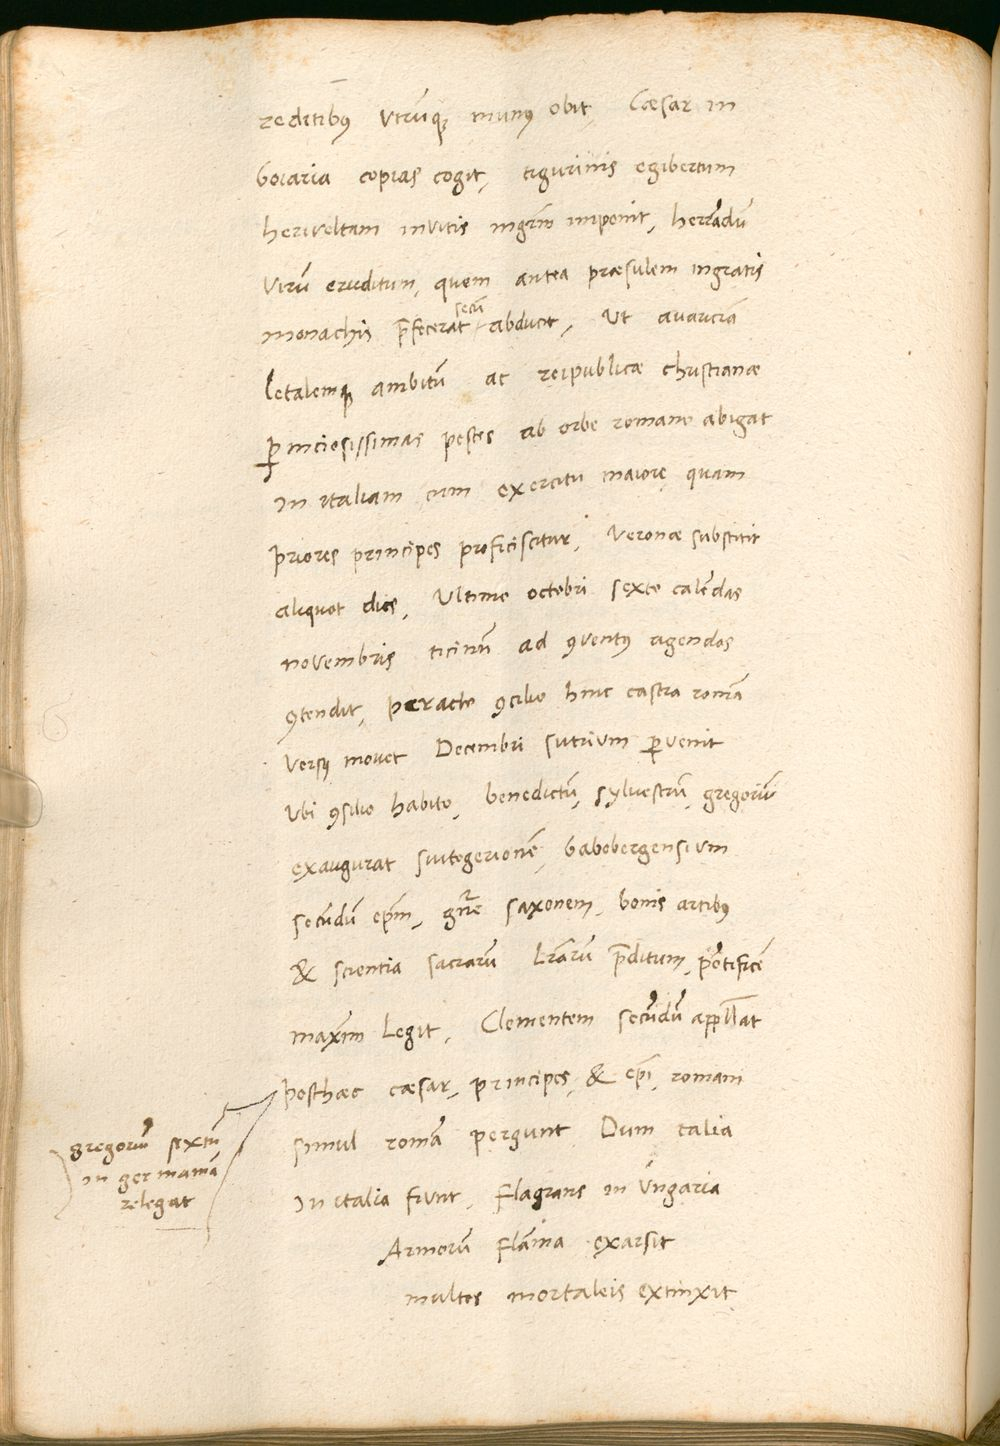 reditibꝰ vtrūqꝫ munꝰ obit, Cæsar in
boiaria copias cogit, tigurinis egibertum
heriveltam invitis ingrm̄ imponit, herrādū
virū eruditum, quem antea præsulem ingratis
monachis p̄fecerat secū abducit, Ut avariciā
letalemqꝫ ambitū ac reipublicæ christianæ
ꝑniciosissimas pestes ab orbe romano abigat
in italiam cum exercitu maiore quam
priores principes proficiscitur, Veronæ substitit
aliquot dies, Ultimo octobri sexto calēdas
novembris ticinū ad ꝯventꝰ agendos
ꝯtendit, peracto ꝯcilio hinc castra romā
versꝰ movet Decembri sutrium ꝑvenit
Vbi ꝯsilio habito, benedictū, sylvestrū, gregoriū
exaugurat suitegerionē, babebergensium
secūdū ep̄m, gn̄re saxonem, bonis artibꝰ
& scientia sacrarū l̄rarū p̄ditum, pōtificē
maxīm legit, Clementem secūdū appl̄lat
Posthæc cæsar, principes, & ep̄i, romani
simul romā pergunt Dum talia
In italia fiunt, flagrans in Ungaria
Armorū flāma exarsit
multos mortaleis extinxit
gregoriū sextū
in germaniā
relegat